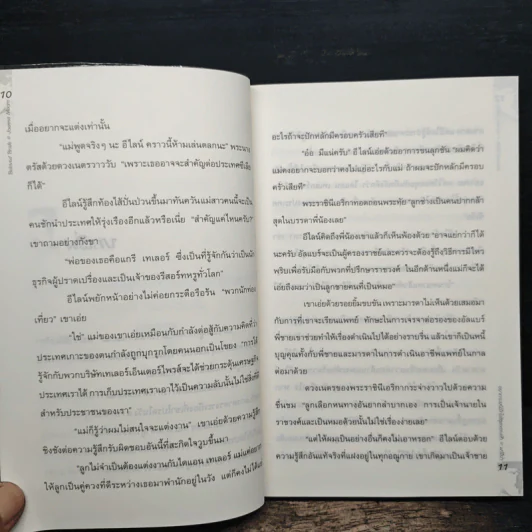 10
เมื่ออยากจะแต่งเท่านั้น
"แม่พูดจริงๆ นะ อีไลน์ คราวนี้ห้ามเล่นตลกนะ" พระนาง
ตรัสด้วยดวงเนตรวาววับ "เพราะเธออาจจะสำคัญต่อประเทศชี
ก็ได้"
อีไลน์รู้สึกท้องไส้ปั่นป่วนขึ้นมาทันควัน แม่สาวคนนี้จะเป็น
คนชักนำประเทศให้รุ่งเรืองอีกแล้วหรือเนี่ย "สำคัญแค่ไหนครับ"
เขาถามอย่างกังขา
"พ่อของเธอคือแกรี เทเลอร์ ซึ่งเป็นที่รู้จักกันว่าเป็นนัก
ธุรกิจผู้ปราดเปรื่องและเป็นเจ้าของรีสอร์ทหรูทั่วโลก"
อีไลน์พยักหน้าอย่างไม่ค่อยกระตือรือร้น "พวกนักท่อง
เที่ยว" เขาเอ่ย
"ใช่" แม่ของเขาเอ่ยเหมือนกับกำลังต่อสู้กับความคิดที่ว่า
ประเทศเกาะของตนกำลังถูกบุกรุกโดยคนนอกเป็นโขยง "การได้
รู้จักกับพวกบริษัทเทเลอร์เอ็นเตอร์ไพรส์จะได้ช่วยกระตุ้นเศรษฐกิจ
ประเทศเราได้ การเก็บประเทศเราเอาไว้เป็นความลับนั้นไม่ใช่สิ่งที่ดี
สำหรับประชาชนของเรา"
"แม่ก็รู้ว่าผมไม่สนใจจะแต่งงาน" เขาเอ่ยด้วยความรู้สึก
ชิงชังต่อความรู้สึกรับผิดชอบอันที่สะกิดใจวูบขึ้นมา
"ลูกไม่จำเป็นต้องแต่งงานกับไดแอน เทเลอร์ แม่แค่อยาก
ให้ลูกเป็นคู่ควงที่ดีระหว่างเธอมาพำนักอยู่ในวัง แต่ก็คงไม่ได้
อะไรถ้าจะปักหลักมีครอบครัวเสียที"
"อ้อ มีแน่ครับ" อีไลน์เอ่ยด้วยอาการขนลุกชัน "ผมคิดว่า
แม่คงอยากจะบอกว่าคงไม่แย่อะไรกับแม่ ถ้าผมจะปักหลักมีครอบครัว
เสียที"
พระราชินีเอริกาทอดถอนพระทัย "ลูกช่างเป็นคนปากกล้า
สุดในบรรดาพี่น้องเลย"
อีไลน์คิดถึงพี่น้องเขาแล้วก็เห็นพ้องด้วย "อาจแย่กว่านี้ก็ได้
นะครับ อัลแบร์จะเป็นผู้ครองราชย์และควรจะต้องรู้ถึงวิธีการมีไหว
พริบเพื่อรับมือกับพวกที่ปรึกษาราชวงศ์ ในอีกด้านหนึ่งแม่ก็จะได้
เอ่ยถึงผมว่าเป็นลูกชายคนที่เป็นหมอ"
เขาเอ่ยด้วยรอยยิ้มขบขัน เพราะมารดาไม่เห็นด้วยเสมอมา
กับการที่เขาจะเรียนแพทย์ ทักษะในการเจรจาต่อรองของอัลแบร์
พี่ชายเขาช่วยทำให้เรื่องดำเนินไปได้อย่างราบรื่น แล้วเขาก็เป็นหนี้
บุญคุณทั้งกับพี่ชายและมารดาในการดำเนินอาชีพแพทย์ในกาล
ต่อมาด้วย
ดวงเนตรของพระราชินีเอริกากระจ่างวาวไปด้วยความ
ชื่นชม "ลูกเลือกหนทางอันยากลำบากเอง การเป็นเจ้านายใน
ราชวงศ์และเป็นหมอด้วยนั้นไม่ใช่เรื่องง่ายเลย"
"แต่ให้ผมเป็นอย่างอื่นก็คงไม่เอาหรอก" อีไลน์ตอบด้วย
ความรู้สึกอันแท้จริงที่แฝงอยู่ในทุกอณูกาย เขาเกิดมาเป็นเจ้าชาย
11